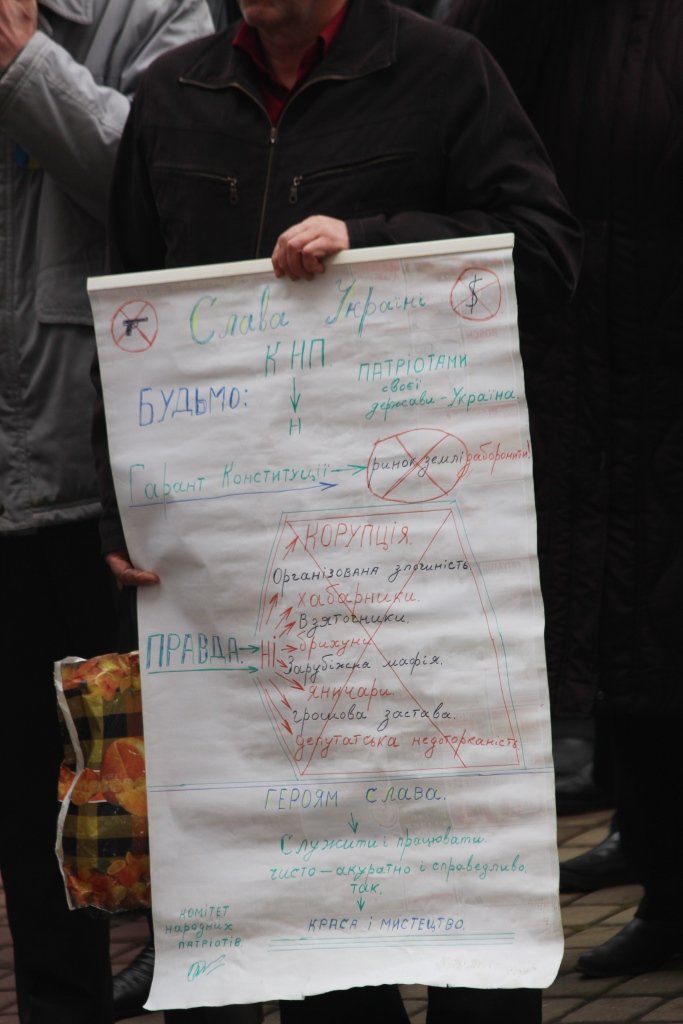 Слава Україні
$
КНП
ПАТРІОТАМИ
БУДЬМО:
своєї
держави - Україна
Н
Гарант Конституції → ринок землі заборонити!
КОРУПЦІЯ.
Організована злочиність
хабарники.
Взяточники.
ПРАВДА. → НІ → брихуни
Зарубіжна мафія.
яничари.
грошова застава.
депутатська недоторканість
ГЕРОЯМ слава.
Служити і працювати.
чисто – акуратно і справедливо.
так.
КОМІТЕТ
народних
ПАТРІОТІВ
КРАСА і МИСТЕЦТВО.